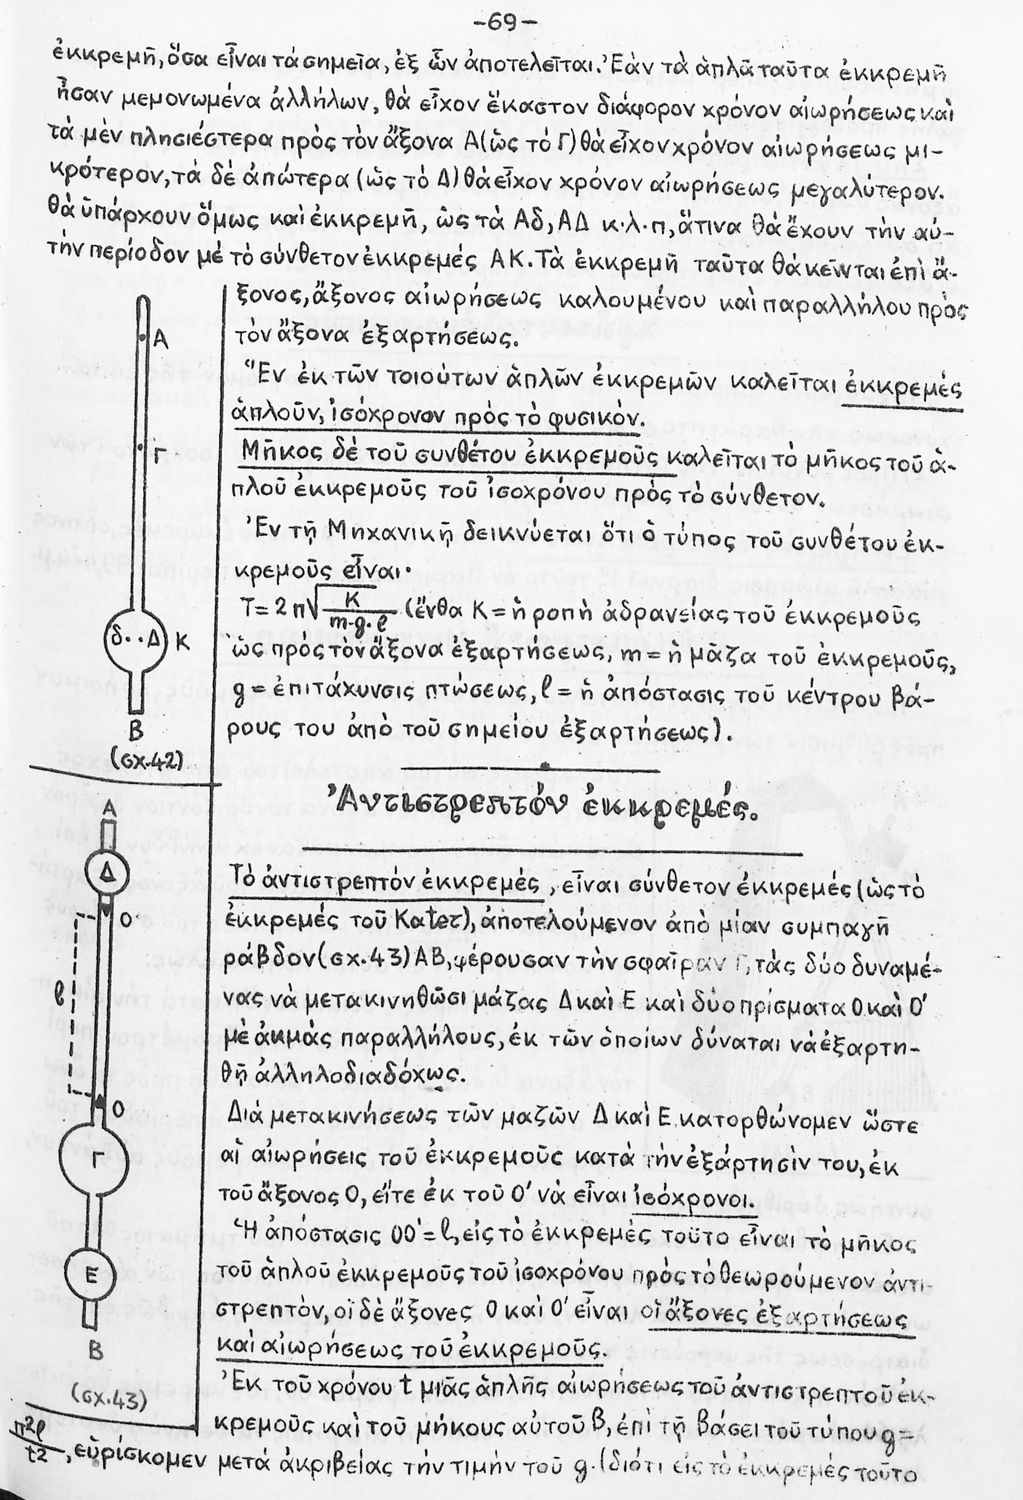 -69-
ἐκκρεμῆ, ὅσα εἶναι τὰ σημεῖα, ἐξ ὧν ἀποτελεῖται. Ἐὰν τὰ ἁπλᾶ ταῦτα ἐκκρεμῆ
ἦσαν μεμονωμένα ἀλλήλων, θὰ εἶχον ἕκαστον διάφορον χρόνον αἰωρήσεως καὶ
τὰ μὲν πλησιέστερα πρὸς τὸν ἄξονα Α (ὡς τὸ Γ) θὰ εἶχον χρόνον αἰωρήσεως μι-
κρότερον, τὰ δὲ ἀπώτερα (ὡς τὸ Δ) θὰ εἶχον χρόνον αἰωρήσεως μεγαλύτερον.
Θὰ ὑπάρχουν ὅμως καὶ ἐκκρεμῆ, ὡς τὰ Αδ, ΑΔ κ.λ.π, ἅτινα θὰ ἔχουν τὴν αὐ-
τὴν περίοδον μὲ τὸ σύνθετον ἐκκρεμές ΑΚ. Τὰ ἐκκρεμῆ ταῦτα θὰ κεῖνται ἐπὶ ἄ-
ξονος, ἄξονος αἰωρήσεως καλουμένου καὶ παραλλήλου πρὸς
τὸν ἄξονα ἐξαρτήσεως.
Ἓν ἐκ τῶν τοιούτων ἁπλῶν ἐκκρεμῶν καλεῖται ἐκκρεμές
ἁπλοῦν, ἰσόχρονον πρὸς τὸ φυσικόν.
Μῆκος δὲ τοῦ συνθέτου ἐκκρεμοῦς καλεῖται τὸ μῆκος τοῦ ἁ-
πλοῦ ἐκκρεμοῦς τοῦ ἰσοχρόνου πρὸς τὸ σύνθετον.
Ἐν τῇ Μηχανικῇ δεικνύεται ὅτι ὁ τύπος τοῦ συνθέτου ἐκ-
κρεμοῦς εἶναι·
T = 2π√K/m·g·ℓ (ἔνθα Κ = ἡ ροπὴ ἀδρανείας τοῦ ἐκκρεμοῦς
ὡς πρὸς τὸν ἄξονα ἐξαρτήσεως, m = ἡ μᾶζα τοῦ ἐκκρεμοῦς,
g = ἐπιτάχυνσις πτώσεως, ℓ = ἡ ἀπόστασις τοῦ κέντρου βά-
ρους του ἀπὸ τοῦ σημείου ἐξαρτήσεως).
Α
Γ
δ..Δ Κ
Β
(σχ.42)
Ἀντιστρεπτόν ἐκκρεμές.
Τὸ ἀντιστρεπτόν ἐκκρεμές, εἶναι σύνθετον ἐκκρεμές (ὡς τὸ
ἐκκρεμές τοῦ Kater), ἀποτελούμενον ἀπὸ μίαν συμπαγῆ
ράβδον (σχ.43) ΑΒ, φέρουσαν τὴν σφαῖραν Γ, τὰς δύο δυναμέ-
νας νὰ μετακινηθῶσι μάζας Δ καὶ Ε καὶ δύο πρίσματα Ο καὶ Ο'
μὲ ἀκμὰς παραλλήλους, ἐκ τῶν ὁποίων δύναται νὰ ἐξαρτη-
θῇ ἀλληλοδιαδόχως.
Διὰ μετακινήσεως τῶν μαζῶν Δ καὶ Ε κατορθώνομεν ὥστε
αἱ αἰωρήσεις τοῦ ἐκκρεμοῦς κατὰ τὴν ἐξάρτησίν του, ἐκ
τοῦ ἄξονος Ο, εἴτε ἐκ τοῦ Ο' νὰ εἶναι ἰσόχρονοι.
Ἡ ἀπόστασις ΟΟ' = ℓ, εἰς τὸ ἐκκρεμές τοῦτο εἶναι τὸ μῆκος
τοῦ ἁπλοῦ ἐκκρεμοῦς τοῦ ἰσοχρόνου πρὸς τὸ θεωρούμενον ἀντι-
στρεπτόν, οἱ δὲ ἄξονες Ο καὶ Ο' εἶναι οἱ ἄξονες ἐξαρτήσεως
καὶ αἰωρήσεως τοῦ ἐκκρεμοῦς.
Ἐκ τοῦ χρόνου t μιᾶς ἁπλῆς αἰωρήσεως τοῦ ἀντιστρεπτοῦ ἐκ-
κρεμοῦς καὶ τοῦ μήκους αὐτοῦ β, ἐπὶ τῇ βάσει τοῦ τύπου g =
π²ℓ/t², εὑρίσκομεν μετὰ ἀκριβείας τὴν τιμὴν τοῦ g. (διότι εἰς τὸ ἐκκρεμές τοῦτο
Α
Δ
Ο'
ℓ
Ο
Γ
Ε
Β
(σχ.43)